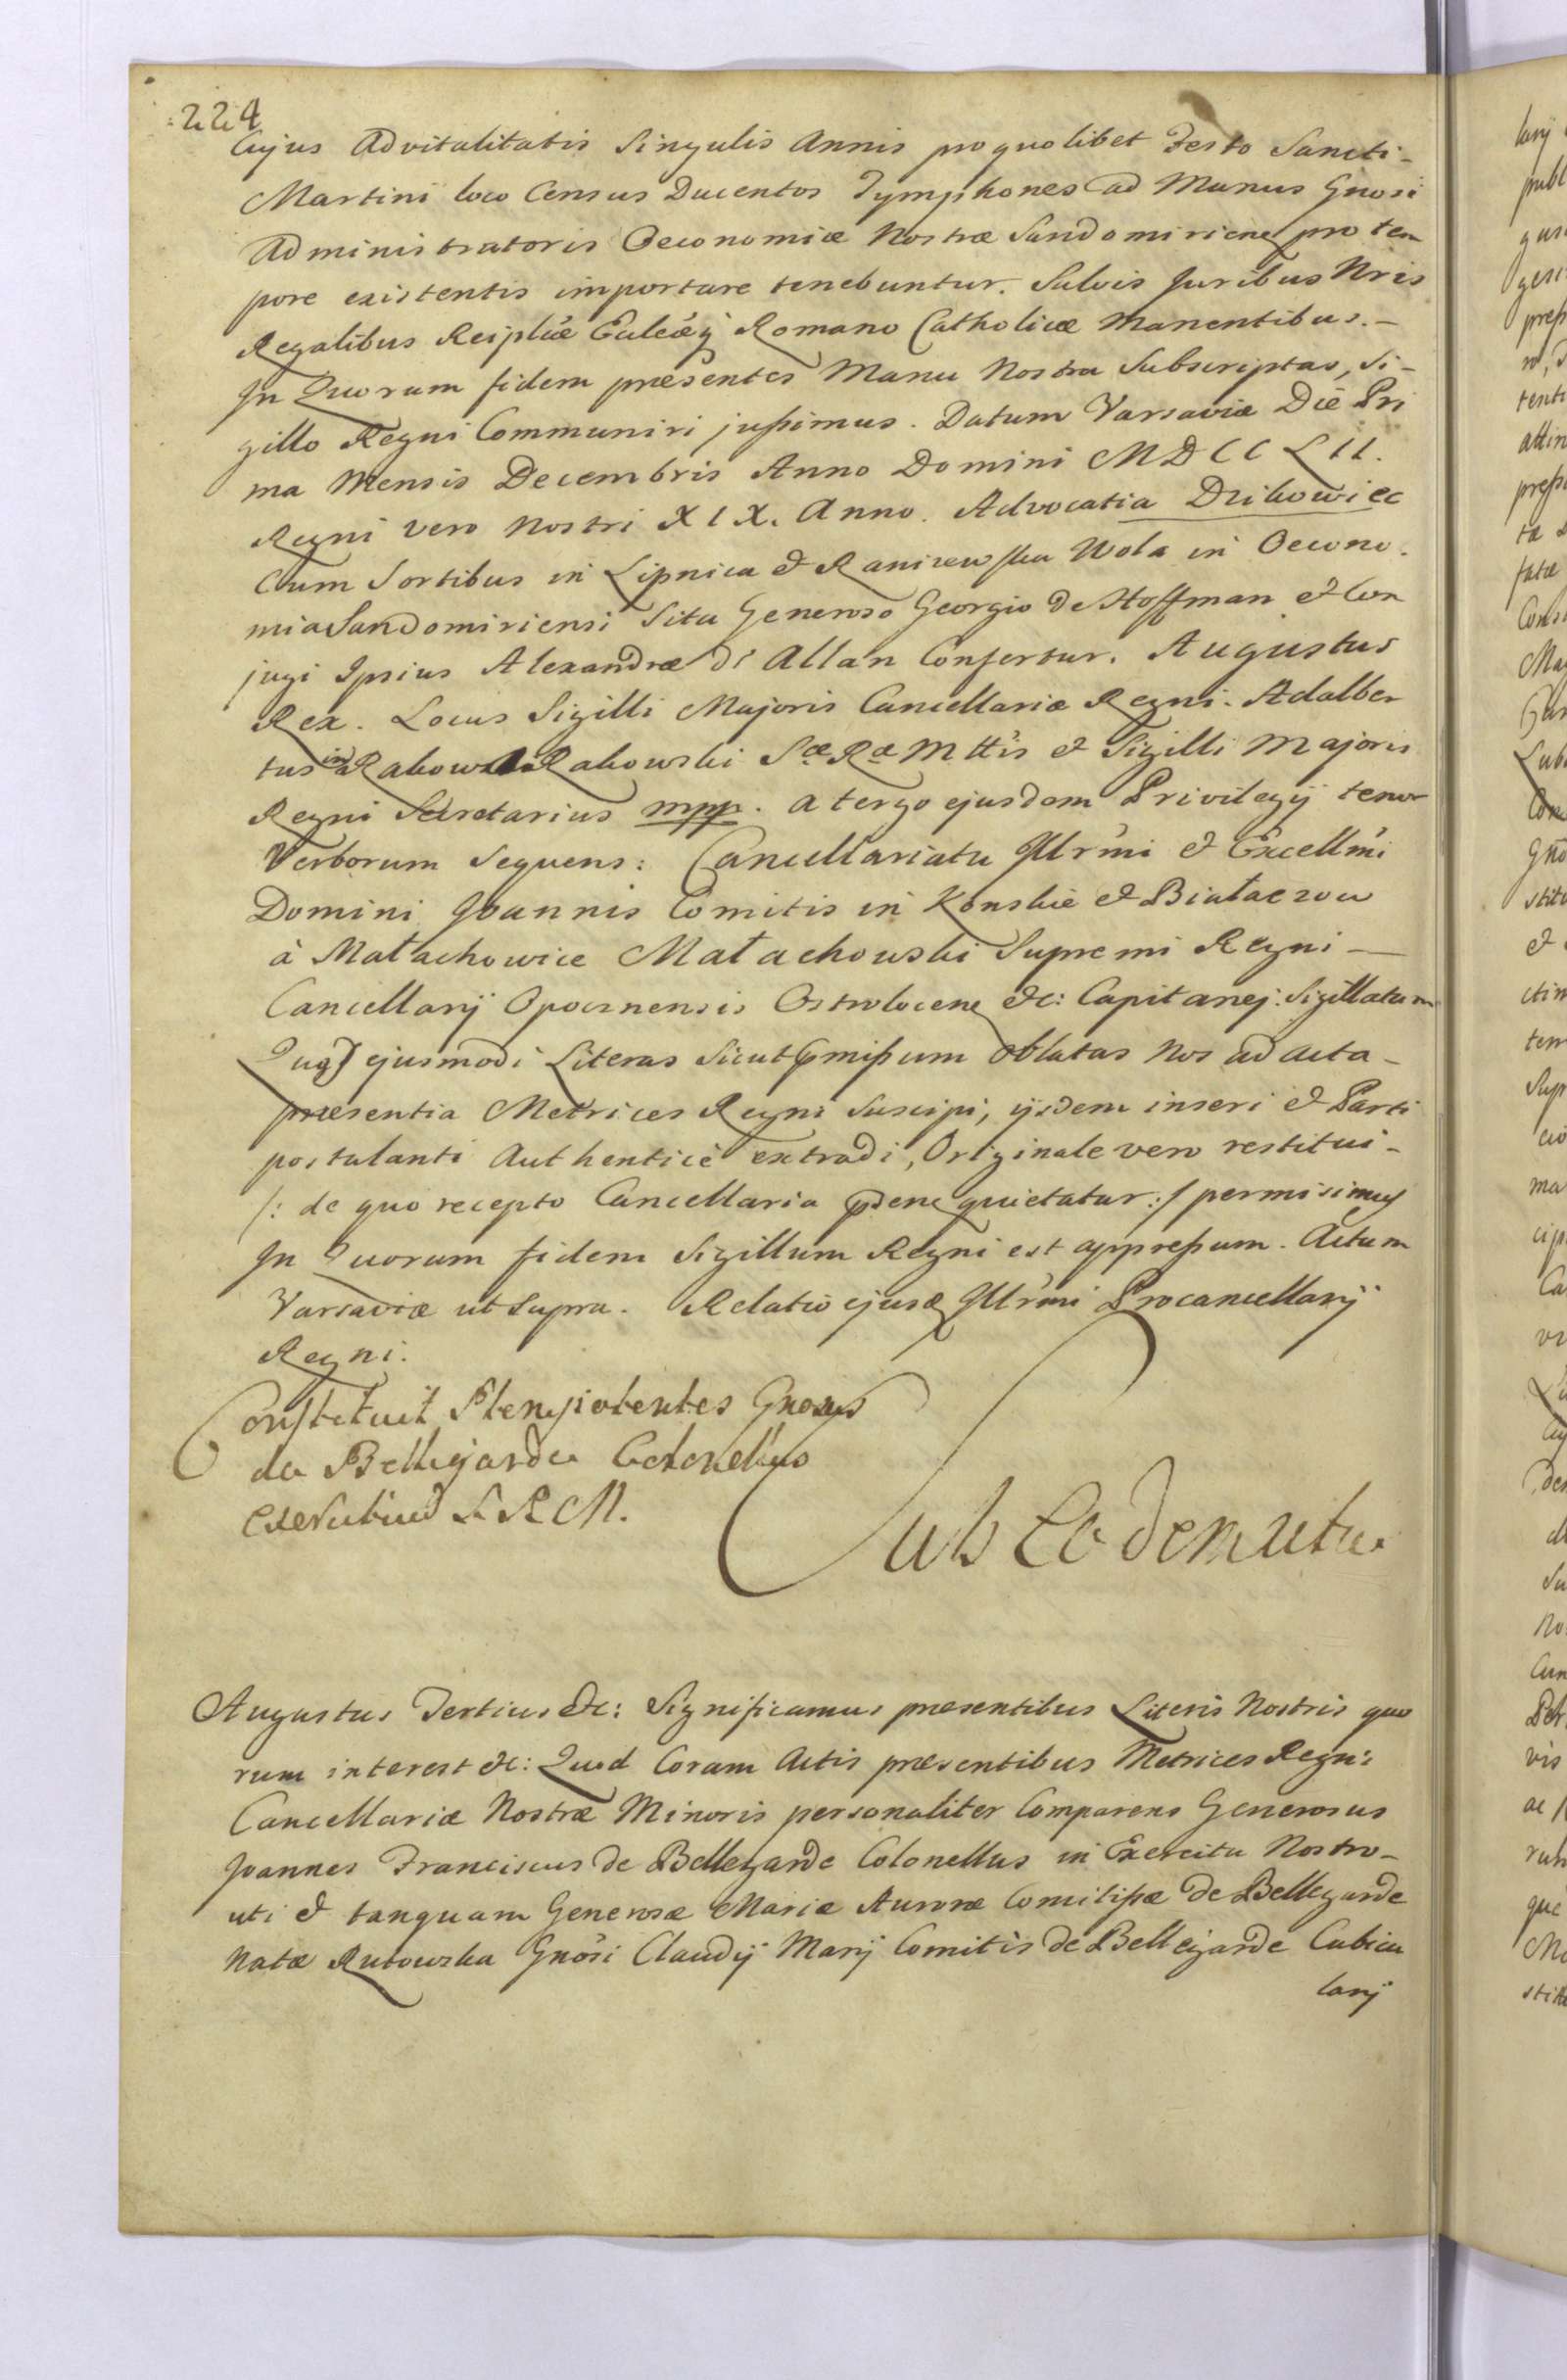 224
Cujus Advitalitatis Singulis Annis pro quolibet Festo Sancti-
Martini loco Census Ducentos Tymphones ad Manus Gnosi
Administratoris Oeconomiæ Nostræ Sandomirien pro tem
pore existentis importare tenebuntur. Salvis Juribus Nris
Regalibus Reiplicæ Romano Catholicæ Manentibus.-
In Quorum fidem præsentes Manu Nostra Subscriptas, Si-
gillo Regni Communiri jussimus. Datum Varsaviæ Die Pri
ma Mensis Decembris Anno Domini MDCCLII.
Regni vero Nostri XIX. Anno. Advocatia Dzikowiec
Cum Sortibus in Lipnica & Ranizewska Wola in Oecono-
mia Sandomiriensi Sita Generoso Georgio de Hoffman et Con
jugi Ipsius Alexandræ di Allan Confertur. Augustus
Rex. Locus Sigilli Majoris Cancellariæ Regni. Adalber
tus in Rakowski Sæ Ræ Mttis & Sigilli Majoris
Regni Secretarius mpp. a tergo ejusdem Privilegij tenor
Verborum Sequens: Cancellariatu Illrmi & Excellmi
Domini Joannis Comitis in Konskie & Białaczow
à Małachowice Małachowski Supremi Regni —
Cancellarij Opocznensis Ostrolocen &c: Capitanej. Sigillatum
ejusmodi Literas Sicut pmissum oblatas Nos ad Acta-
præsentia Metrices Regni Suscipi, ijsdem inseri & Parti
postulanti Authenticè extradi, Originale vero restitui-
/: de quo recepto Cancellaria pden quietatur :/ permisimus
In Quorum fidem Sigillum Regni est appressum. Actum
Varsaviæ ut Supra. Relatio ejusd Illrmi Procancellarij
Regni.
Constituit Plenipotentes Gnosus
de Bellegarde Colonellus
S R M.
Sub Eodem actu
Augustus Tertius &c: Significamus præsentibus Literis Nostris quo
rum interest &c: Quod Coram Actis præsentibus Metrices Regni
Cancellariæ Nostræ Minoris personaliter Comparens Generosus
Joannes Franciscus de Bellegarde Colonellus in Exercitu Nostro-
uti & tanquam Generosæ Mariæ Auroræ Comitissæ de Bellegarde
Natæ Rutowska Gnosi Claudij Marij Comitis de Bellegarde Cubicu
larij